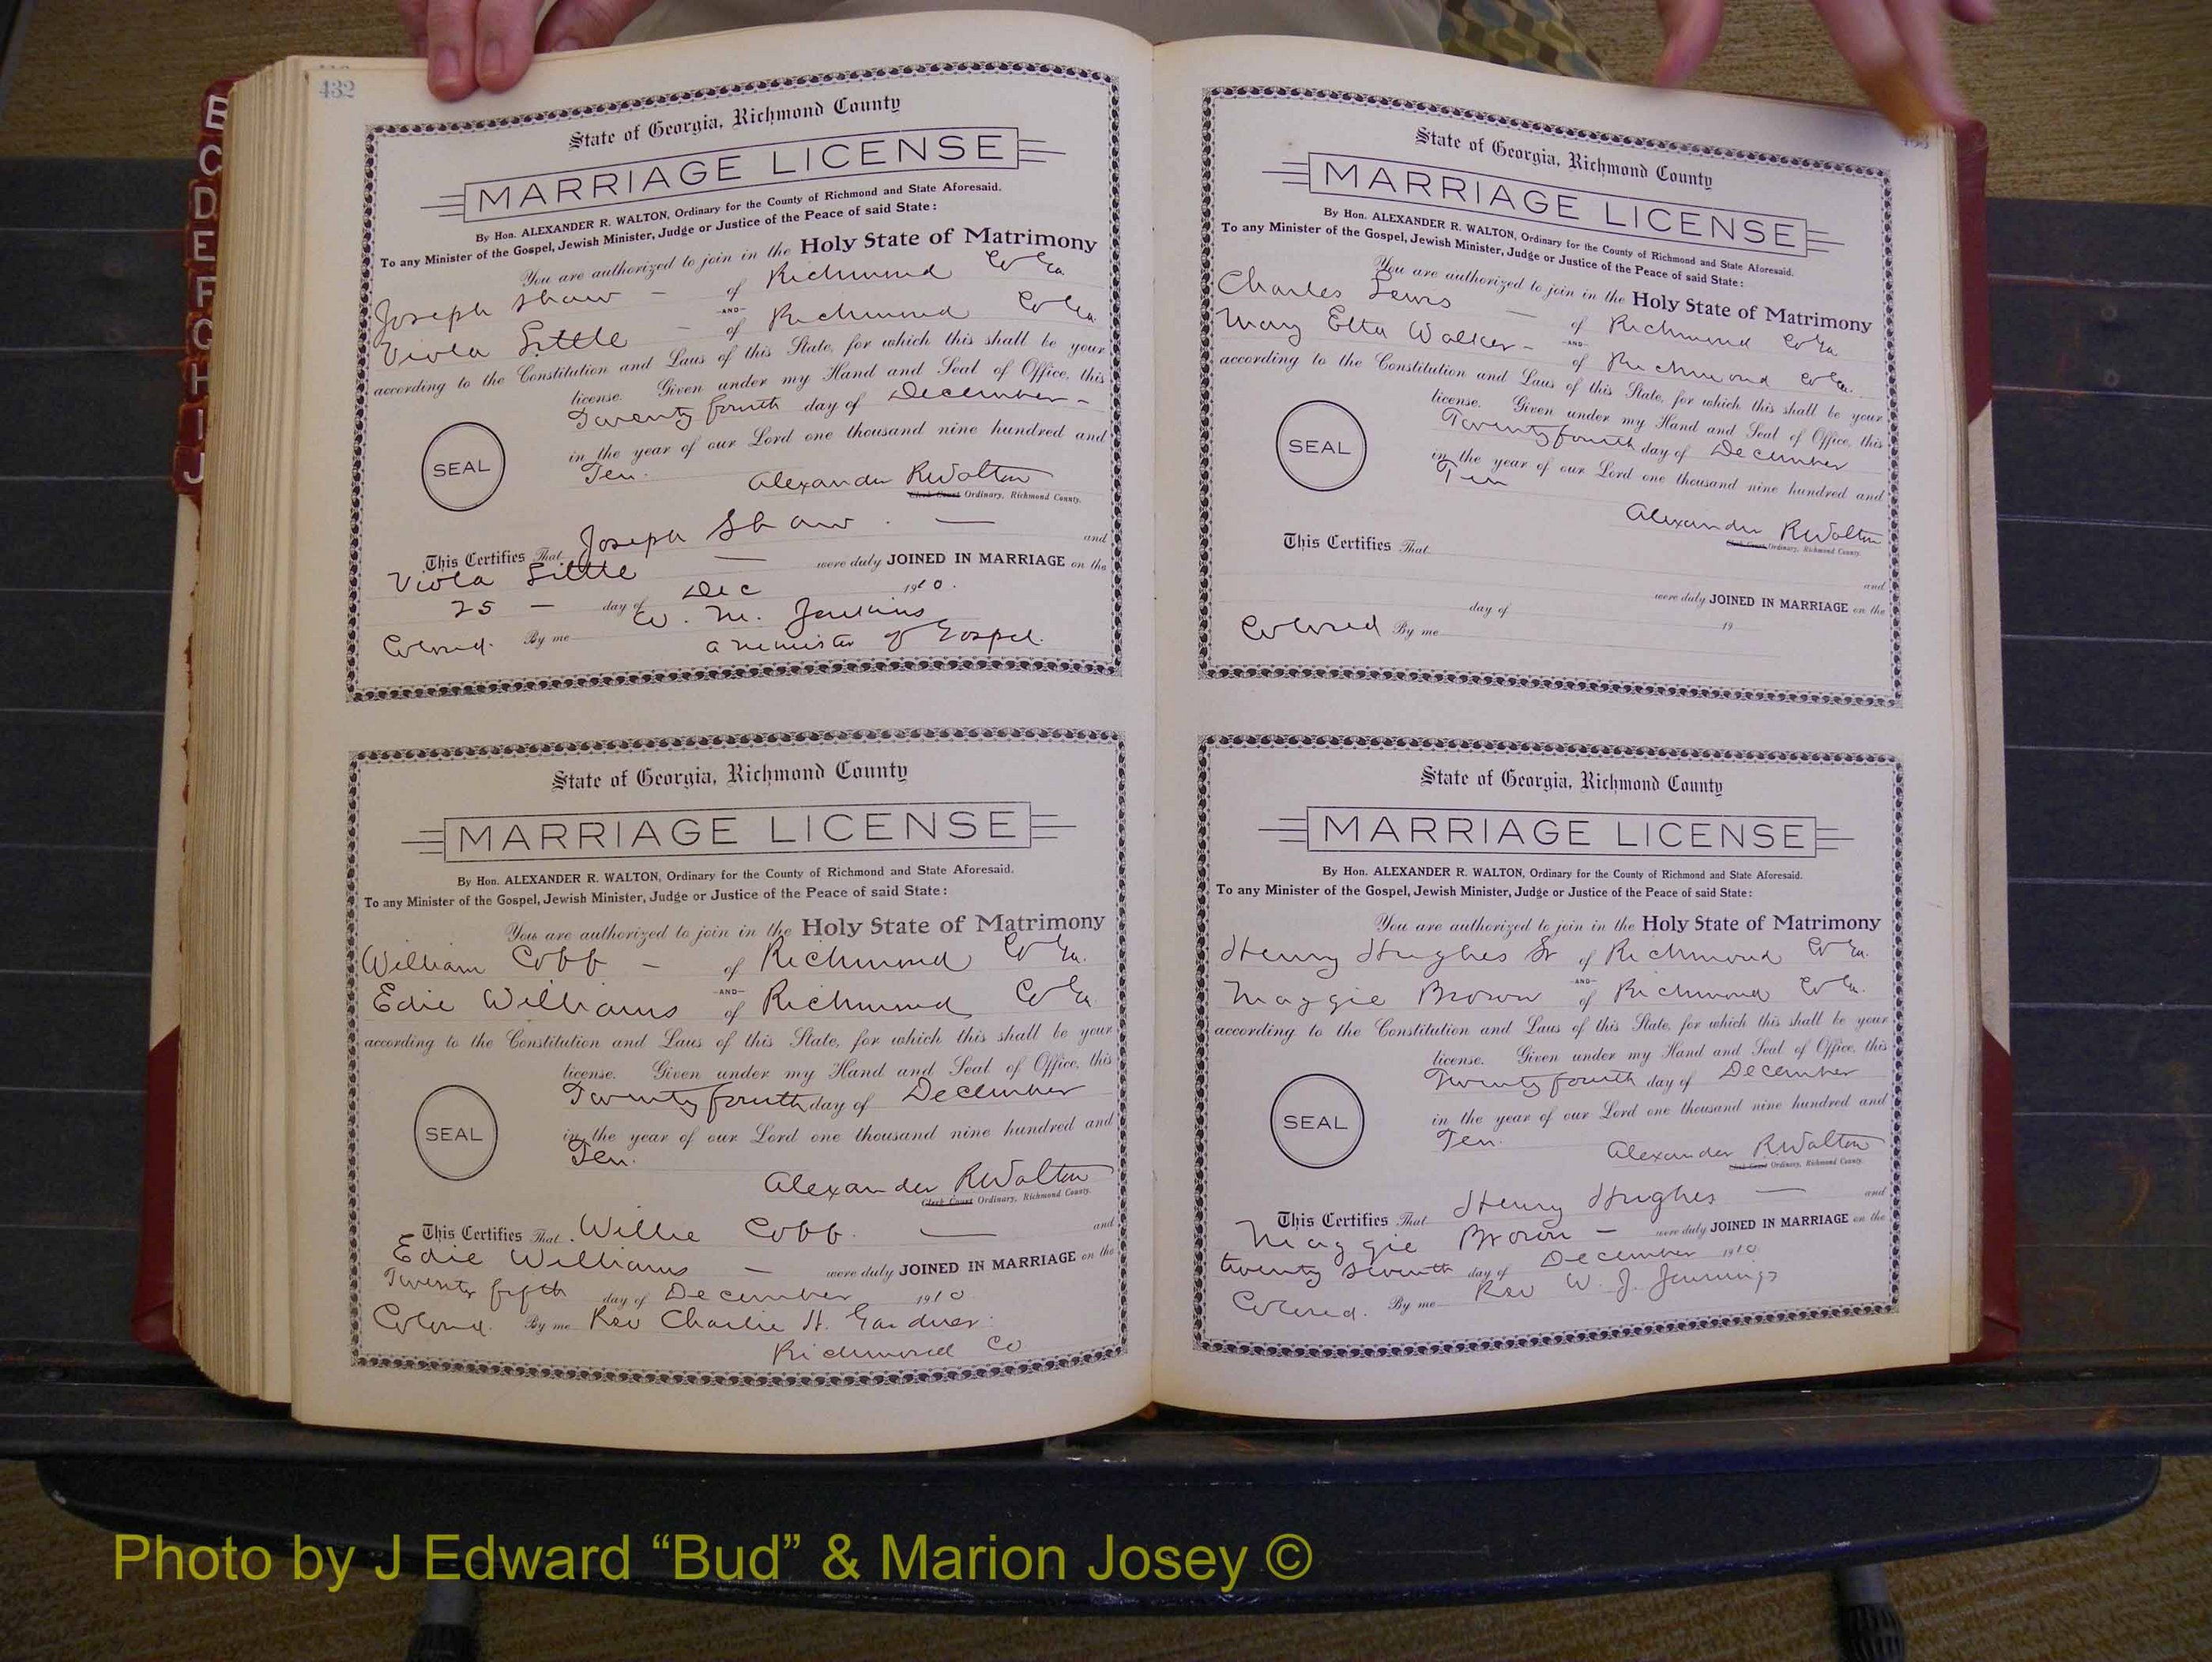 B
C
D
E
F
G
H
I
J
432
State of Georgia, Richmond County
MARRIAGE LICENSE
By Hon. ALEXANDER R. WALTON, Ordinary for the County of Richmond and State Aforesaid.
To any Minister of the Gospel, Jewish Minister, Judge or Justice of the Peace of said State:
You are authorized to join in the Holy State of Matrimony
Joseph Shaw - of Richmond Co Ga.
-AND-
Viola Little - of Richmond Co Ga.
according to the Constitution and Laws of this State, for which this shall be your
license. Given under my Hand and Seal of Office, this
Twenty fourth day of December -
SEAL
in the year of our Lord one thousand nine hundred and
Ten.
Alexander R Walton
Clerk Court Ordinary, Richmond County.
This Certifies That Joseph Shaw. — and
Viola Little — were duly JOINED IN MARRIAGE on the
25 - day of Dec 1910.
Colored. By me W. M. Jenkins
a minister of Gospel.
State of Georgia, Richmond County
MARRIAGE LICENSE
By Hon. ALEXANDER R. WALTON, Ordinary for the County of Richmond and State Aforesaid.
To any Minister of the Gospel, Jewish Minister, Judge or Justice of the Peace of said State:
You are authorized to join in the Holy State of Matrimony
William Cobb - of Richmond Co Ga.
-AND-
Edie Williams of Richmond Co Ga
according to the Constitution and Laws of this State, for which this shall be your
license. Given under my Hand and Seal of Office, this
Twenty fourth day of December
SEAL
in the year of our Lord one thousand nine hundred and
Ten.
Alexander R Walton
Clerk Court Ordinary, Richmond County.
This Certifies That Willie Cobb. — and
Edie Williams — were duly JOINED IN MARRIAGE on the
Twenty fifth day of December 1910
Colored. By me Rev Charlie H. Gardner.
Richmond Co
433
State of Georgia, Richmond County
MARRIAGE LICENSE
By Hon. ALEXANDER R. WALTON, Ordinary for the County of Richmond and State Aforesaid.
To any Minister of the Gospel, Jewish Minister, Judge or Justice of the Peace of said State:
You are authorized to join in the Holy State of Matrimony
Charles Lewis — of Richmond Co Ga
-AND-
Mary Etta Walker - of Richmond Co Ga.
according to the Constitution and Laws of this State, for which this shall be your
license. Given under my Hand and Seal of Office, this
Twenty fourth day of December
SEAL
in the year of our Lord one thousand nine hundred and
Ten
Alexander R Walton
Clerk Court Ordinary, Richmond County.
This Certifies That and
were duly JOINED IN MARRIAGE on the
day of 19
Colored By me
State of Georgia, Richmond County
MARRIAGE LICENSE
By Hon. ALEXANDER R. WALTON, Ordinary for the County of Richmond and State Aforesaid.
To any Minister of the Gospel, Jewish Minister, Judge or Justice of the Peace of said State:
You are authorized to join in the Holy State of Matrimony
Henry Hughes Sr of Richmond Co Ga.
-AND-
Maggie Brown of Richmond Co Ga.
according to the Constitution and Laws of this State, for which this shall be your
license. Given under my Hand and Seal of Office, this
Twenty fourth day of December
SEAL
in the year of our Lord one thousand nine hundred and
Ten.
Alexander R Walton
Clerk Court Ordinary, Richmond County.
This Certifies That Henry Hughes — and
Maggie Brown - were duly JOINED IN MARRIAGE on the
twenty seventh day of December 1910
Colored. By me Rev W. J. Jennings
Photo by J Edward “Bud” & Marion Josey ©